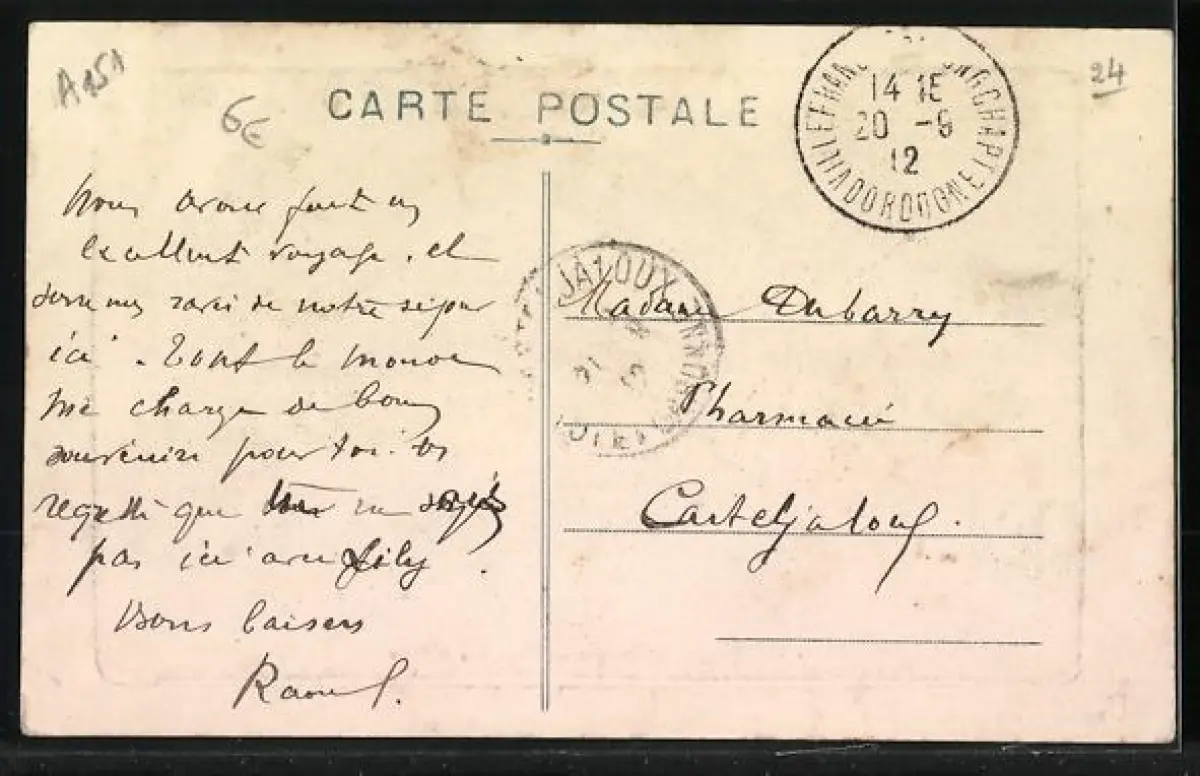 A151
6€
CARTE POSTALE
24
14 15
20 -6
12
DORDOGNE
Nous avons fait un
excellent voyage. et
sommes ravis de notre séjour
ici. Tout le monde
me charge de bons
souvenirs pour toi. Je
regrette que tu ne sois
pas ici avec Lily.
Bons baisers
Raoul.
JALOUX
Madame Dubarry
Pharmacie
Casteljaloux.